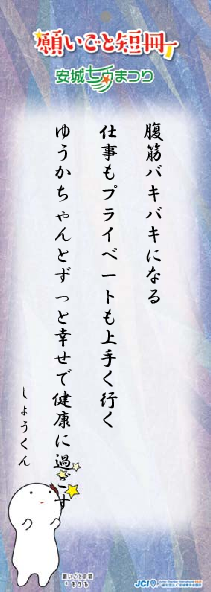 願いごと短冊
安城七夕まつり
腹筋バキバキになる
仕事もプライベートも上手く行く
ゆうかちゃんとずっと幸せで健康に過ごす
しょうくん
願いごと短冊
JCI